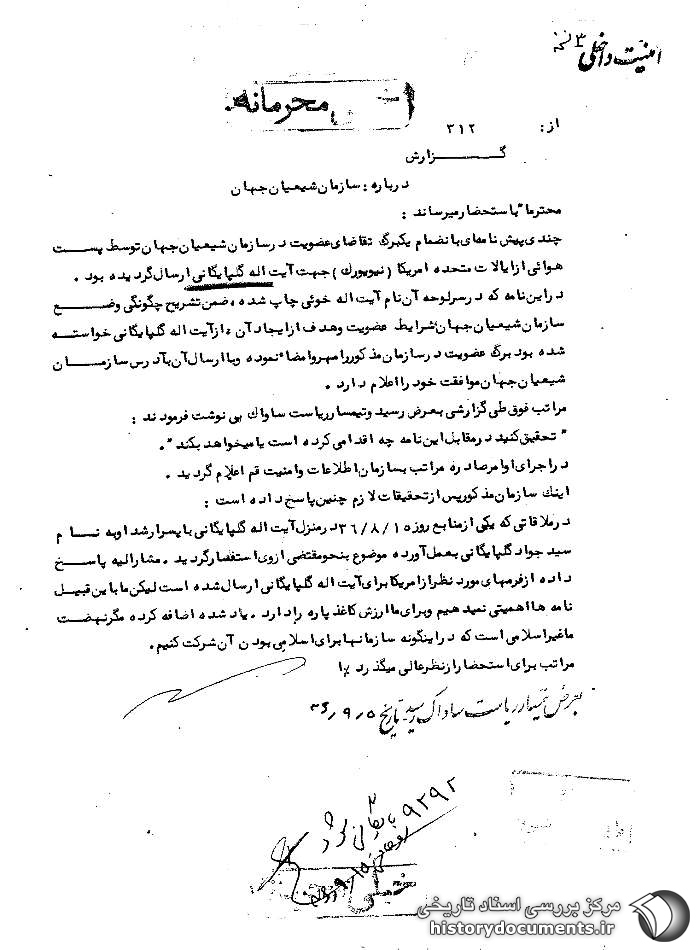 امنیت داخلی ۳
محرمانه
از : ۳۱۲
گــــزارش
درباره : سازمان شیعیان جهان
محترما" باستحضار میرساند :
چندی پیش نامه‌ای بانضمام یکبرگ تقاضای عضویت در سازمان شیعیان جهان توسط پست
هوائی از ایالات متحده امریکا ( نیویورک ) جهت آیت اله گلپایگانی ارسال گردیده بود .
در این نامه که در سرلوحه آن نام آیت اله خوئی چاپ شده ، ضمن تشریح چگونگی وضع
سازمان شیعیان جهان شرایط عضویت و هدف از ایجاد آن ، از آیت اله گلپایگانی خواسته
شده بود برگ عضویت در سازمان مذکور را مهر و امضاء نموده و با ارسال آن بآدرس سازمان
شیعیان جهان موافقت خود را اعلام دارد .
مراتب فوق طی گزارشی بعرض رسید و تیمسار ریاست ساواک پی نوشت فرمودند :
" تحقیق کنید در مقابل این نامه چه اقدامی کرده است یا میخواهد بکند " .
در اجرای اوامر صادره مراتب بسازمان اطلاعات و امنیت قم اعلام گردید .
اینک سازمان مذکور پس از تحقیقات لازم چنین پاسخ داده است :
در ملاقاتی که یکی از منابع روز ۳۶/۸/۱۵ در منزل آیت اله گلپایگانی با پسر ارشد او به نام
سید جواد گلپایگانی بعمل آورده موضوع بنحو مقتضی از وی استفسار گردید . مشارالیه پاسخ
داده از فرمهای مورد نظر از امریکا برای آیت اله گلپایگانی ارسال شده است لیکن ما باین قبیل
نامه ها اهمیتی نمیدهیم و برای ما ارزش کاغذ پاره را دارد . یاد شده اضافه کرده مگر نهضت
ما غیر اسلامی است که در اینگونه سازمانها برای اسلامی بودن آن شرکت کنیم .
مراتب برای استحضار از نظر عالی میگذرد
بعرض تیمسار ریاست ساواک رسید تاریخ ۳۶/۹/۵
۹۲۹۲
مرکز بررسی اسناد تاریخی
historydocuments.ir